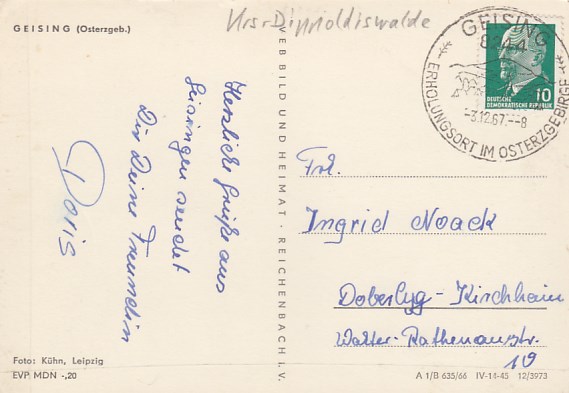 Krs. Dippoldiswalde
GEISING (Osterzgeb.)
GEISING
8244
ERHOLUNGSORT IM OSTERZGEBIRGE
-3.12.67.--8
DEUTSCHE
DEMOKRATISCHE REPUBLIK
10
Herzliche Grüße aus
Geisingen sendet
Dir Deine Freundin
Doris
VEB BILD UND HEIMAT · REICHENBACH i. V.
Frl.
Ingrid Noack
Doberlug-Kirchhain
Walter-Rathenaustr.
19
Foto: Kühn, Leipzig
EVP MDN -,20
A 1/B 635/66 IV-14-45 12/3973